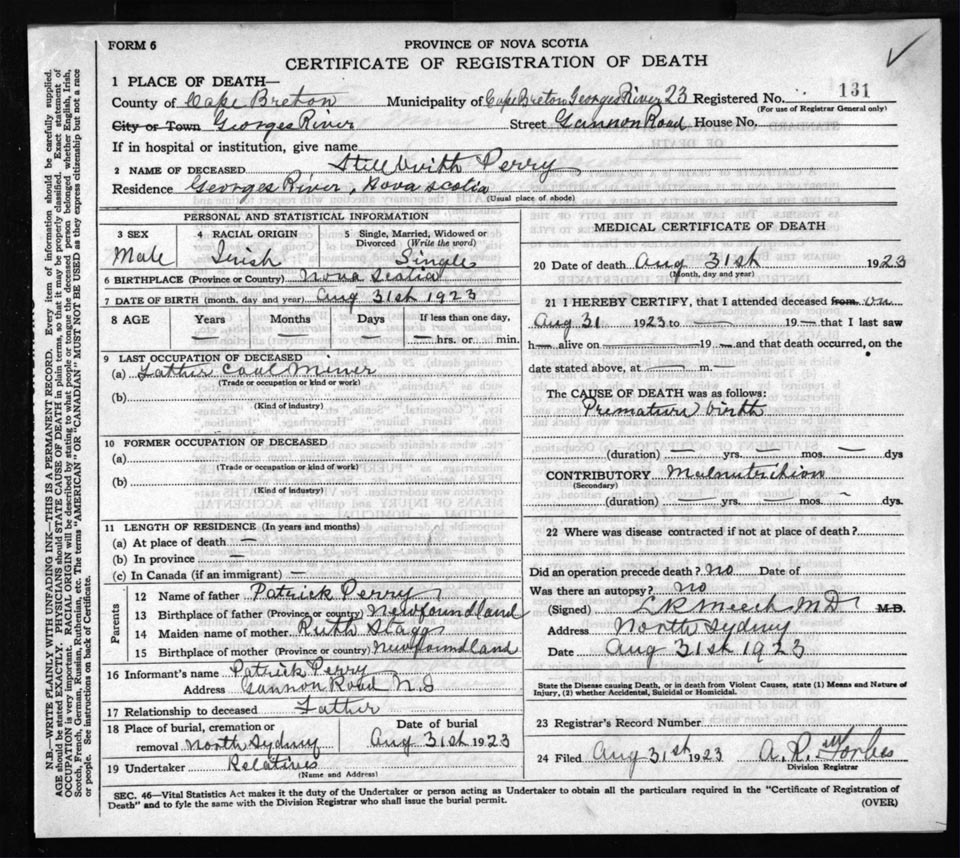 FORM 6
PROVINCE OF NOVA SCOTIA
CERTIFICATE OF REGISTRATION OF DEATH
131
1 PLACE OF DEATH—
County of Cape Breton Municipality of Cape Breton Georges River 23 Registered No.
(For use of Registrar General only)
City or Town Georges River Street Gannon Road House No.
If in hospital or institution, give name
2 NAME OF DECEASED Still birth Perry
Residence Georges River, Nova Scotia
(Usual place of abode)
PERSONAL AND STATISTICAL INFORMATION
3 SEX 4 RACIAL ORIGIN 5 Single, Married, Widowed or Divorced (Write the word)
Male Irish Single
6 BIRTHPLACE (Province or Country) Nova Scotia
7 DATE OF BIRTH (month, day and year) Aug 31st 1923
8 AGE Years Months Days If less than one day,
— — — — hrs. or min.
9 LAST OCCUPATION OF DECEASED
(a) Father Coal Miner
(Trade or occupation or kind or work)
(b)
(Kind of industry)
10 FORMER OCCUPATION OF DECEASED
(a)
(Trade or occupation or kind of work)
(b)
(Kind of industry)
11 LENGTH OF RESIDENCE (In years and months)
(a) At place of death —
(b) In province —
(c) In Canada (if an immigrant) —
Parents
12 Name of father Patrick Perry
13 Birthplace of father (Province or country) Newfoundland
14 Maiden name of mother Ruth Stagg
15 Birthplace of mother (Province or country) Newfoundland
16 Informant's name Patrick Perry
Address Gannon Road N.S
17 Relationship to deceased Father
18 Place of burial, cremation or removal North Sydney Date of burial Aug 31st 1923
19 Undertaker Relatives
(Name and Address)
MEDICAL CERTIFICATE OF DEATH
20 Date of death Aug 31st 1923
(Month, day and year)
21 I HEREBY CERTIFY, that I attended deceased from on
Aug 31 1923 to — 19 — that I last saw
h— alive on — 19 — and that death occurred, on the
date stated above, at — m. —
The CAUSE OF DEATH was as follows:
Premature birth
(duration) — yrs. — mos. — dys
CONTRIBUTORY Malnutrition
(Secondary)
(duration) — yrs. — mos. — dys.
22 Where was disease contracted if not at place of death?
Did an operation precede death? no Date of
Was there an autopsy? no
(Signed) L R Meech MD M.D.
Address North Sydney
Date Aug 31st 1923
State the Disease causing Death, or in death from Violent Causes, state (1) Means and Nature of
Injury, (2) whether Accidental, Suicidal or Homicidal.
23 Registrar's Record Number
24 Filed Aug 31st 1923 A. R. Forbes
Division Registrar
SEC. 46—Vital Statistics Act makes it the duty of the Undertaker or person acting as Undertaker to obtain all the particulars required in the "Certificate of Registration of
Death" and to fyle the same with the Division Registrar who shall issue the burial permit.
(OVER)
N.B.—WRITE PLAINLY WITH UNFADING INK—THIS IS A PERMANENT RECORD. Every item of information should be carefully supplied.
AGE should be stated EXACTLY. PHYSICIANS should STATE CAUSE OF DEATH in plain terms, so that it may be properly classified. Exact statement of
OCCUPATION is very important. RACIAL ORIGIN will be described by stating to what people or tongue the deceased person belonged whether English, Irish,
Scotch, French, German, Russian, Ruthenian, etc. The terms "AMERICAN" OR "CANADIAN" MUST NOT BE USED as they express citizenship but not a race
or people. See instructions on back of Certificate.